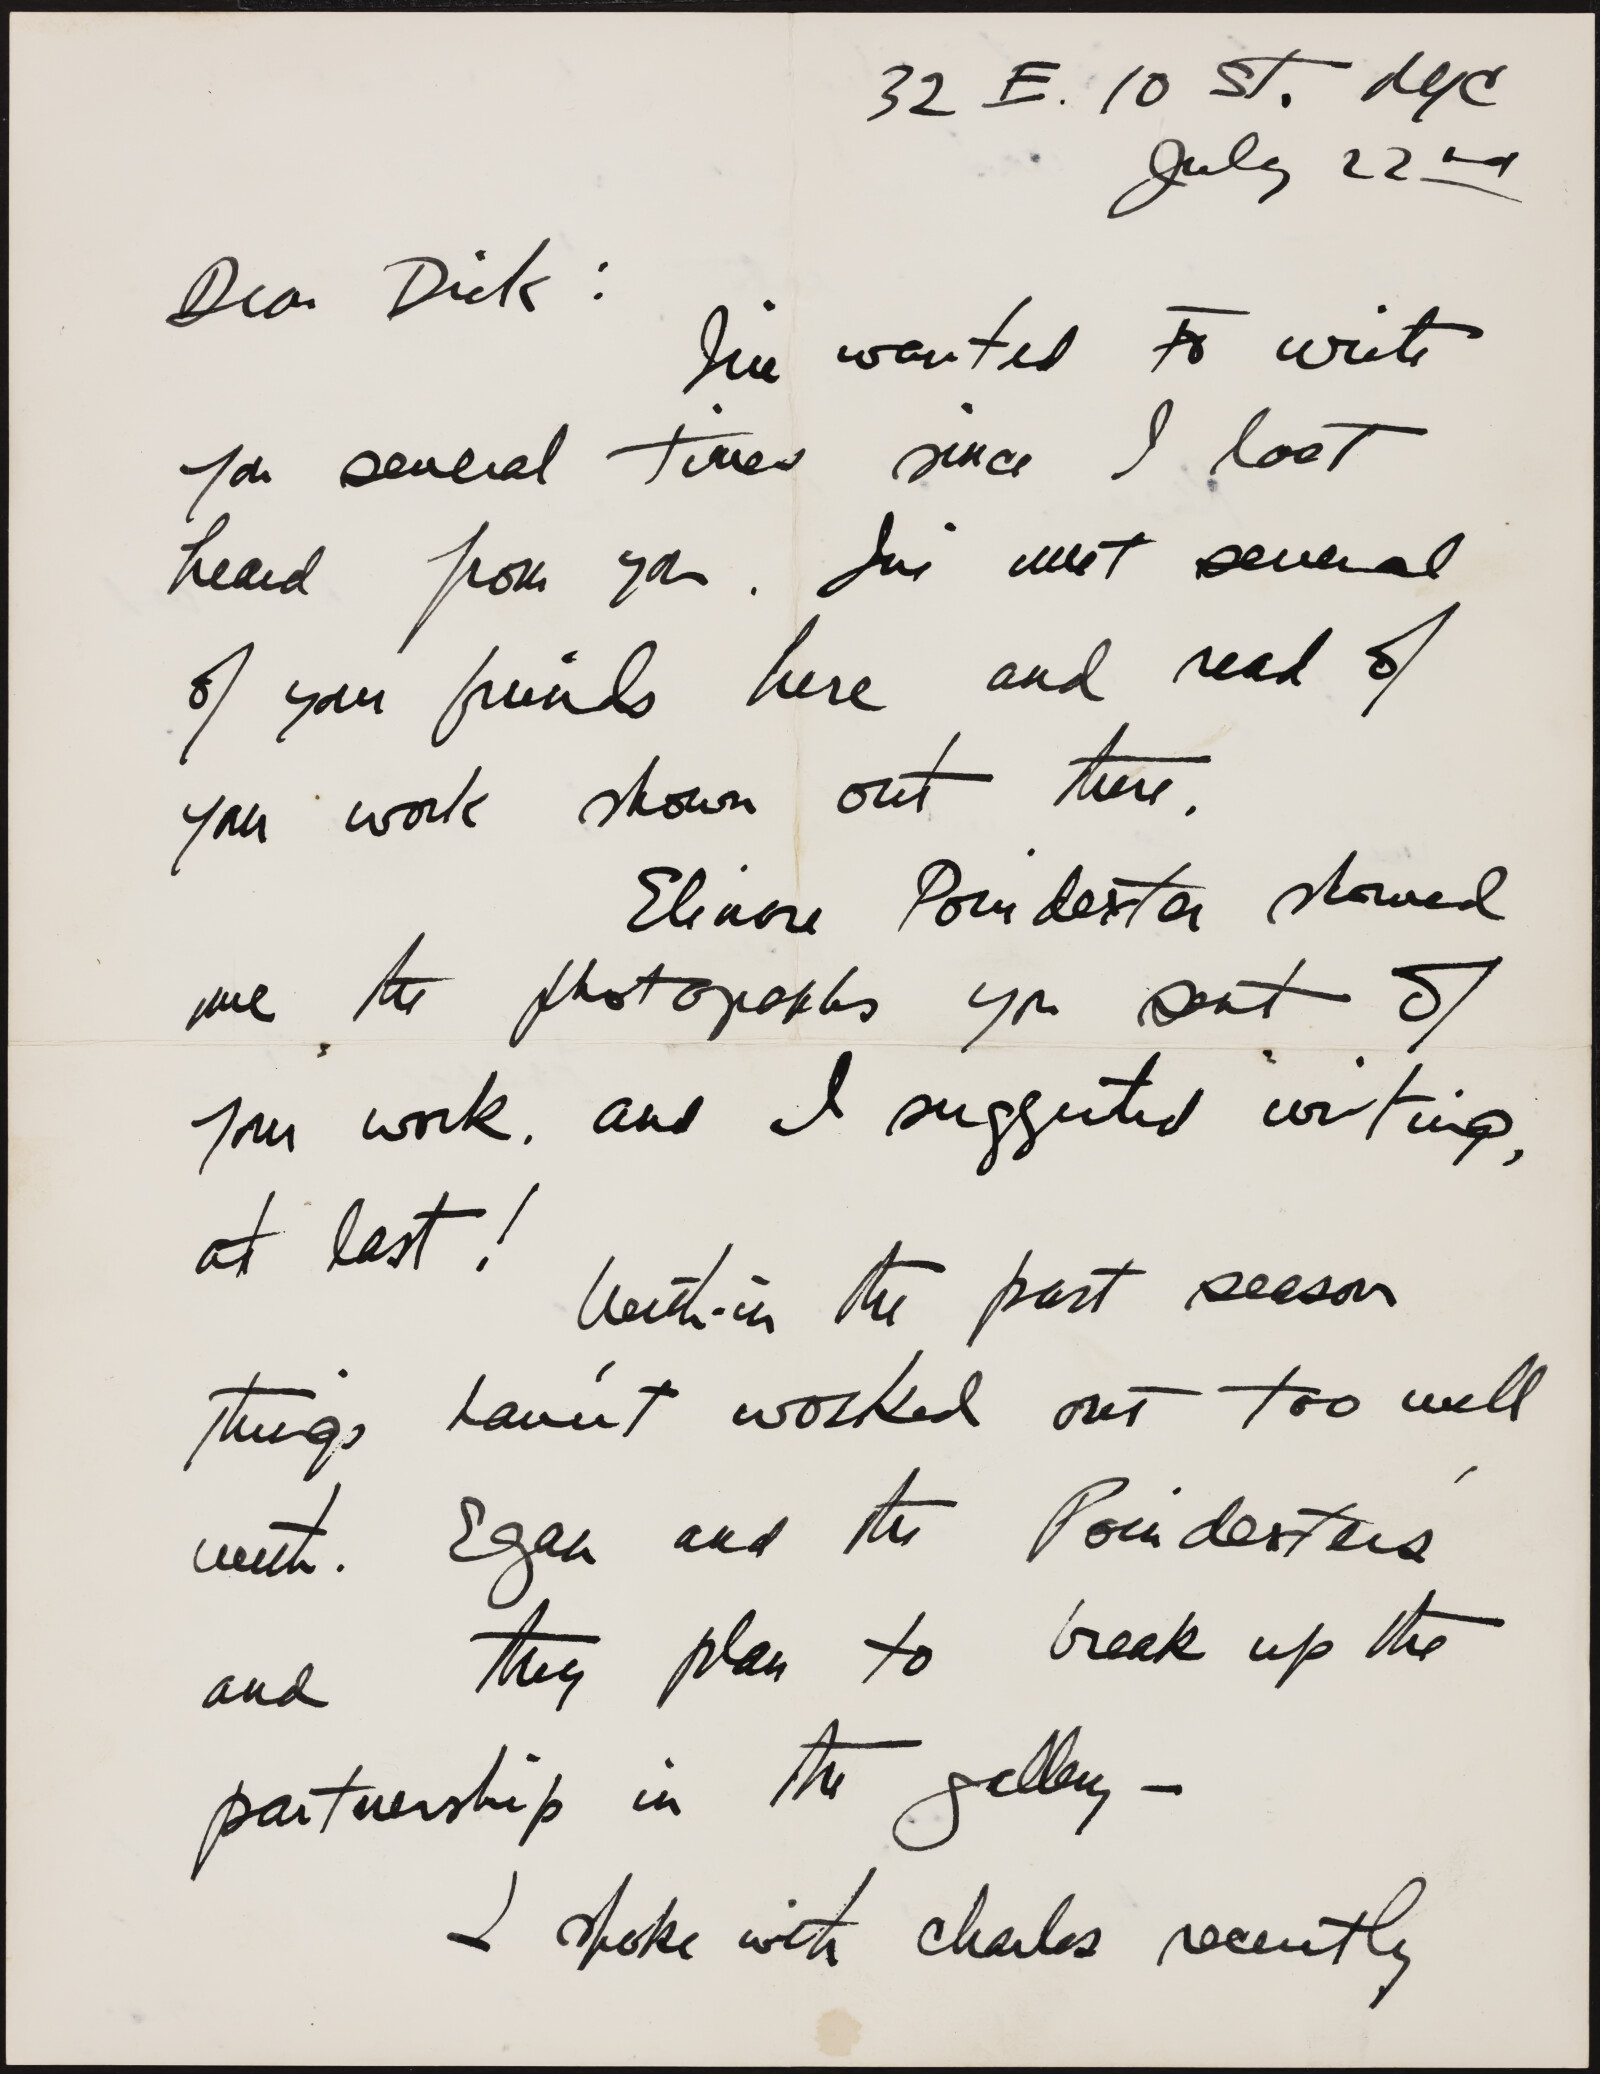 32 E. 10 St. NYC
July 22nd
Dear Dick:
I've wanted to write
you several times since I last
heard from you. I've met several
of your friends here and read of
your work shown out there.
Elinore Poindexter showed
me the photographs you sent of
your work. and I suggested writing,
at last!
With-in the past season
things haven't worked out too well
with. Egan and the Poindexters'
and they plan to break up the
partnership in the gallery –
I spoke with Charles recently